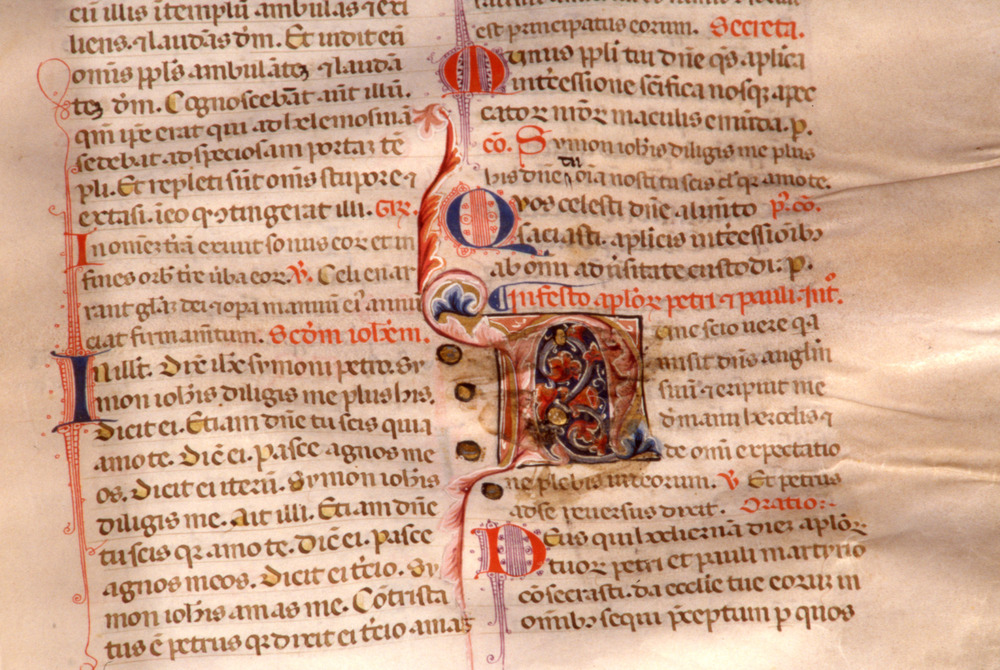 cū illis ī templū ambulās ⁊ exi
liens. ⁊ laudās dm̄. Et uidit eū
omīs ppl̄s ambulātē ⁊ laudā
tē dm̄. Cognoscebāt aūt illū.
qm̄ ip̄e erat qui ad helemosinā
sedebat ad speciosam portaꝫ tē
pli. Et repleti sūt om̄s stupore ⁊
extasi. ī eo qͦ ꝯtingerat illi. Gr̄.
In om̄e t̄rā exiuit sonus eoꝝ et in
fines orb̄ tr̄e ūba eoꝝ. ℣. Celi enar
rant gl̄aꝫ dei ⁊ opa manuū eiꝰ annū
ciat firmam̄tum. Scd̄m ioh̄em.
In illt̄. Dix̄ ih̄c symoni petro. Sy
mon ioh̄is diligis me plus his.
Dicit ei. Etiam dn̄e tu scis quia
amo te. Dic̄ ei. Pasce agnos me
os. Dicit ei iterū. Symon ioh̄is
diligis me. Ait illi. Etiam dn̄e
tu scis qꝛ amo te. Dic̄ ei. Pasce
agnos meos. Dicit ei t̄cio. Sy
mon ioh̄is amas me. Cōtrista
tus ē petrus qꝛ dixit ei t̄cio amas
est principatus eorum. Secreta.
Munus ppl̄i tui dn̄e qs̄ aplica
int̄cessione sc̄ifica nosqꝫ a pec
catoꝝ nr̄oꝝ maculis emūda. p.
cō. Symon ioh̄is diligis me plus
his dn̄e oīa nosti tu scis dn̄e qꝛ amo te.
Quos celesti dn̄e alim̄to p̄. cō.
saciasti. aplicis int̄cessioib;
ab omi aduersitate custodi. p.
In festo aploꝝ petri ⁊ pauli. Int̄.
unc scio uere qꝛ
misit dn̄s anglm̄
suū ⁊ eripuit me
d̄ manu herodis ⁊
de omī expectatio
ne plebis iudeorum. ℣ Et petrus
ad se reuersus dixit. Oratio.
Deus qui hodiernā dieꝫ aploꝝ
tuoꝝ petri et pauli martyrio
cōsecrasti. da ecclīe tue eoruꝫ in
omīb; sequi p̄ceptum p quos